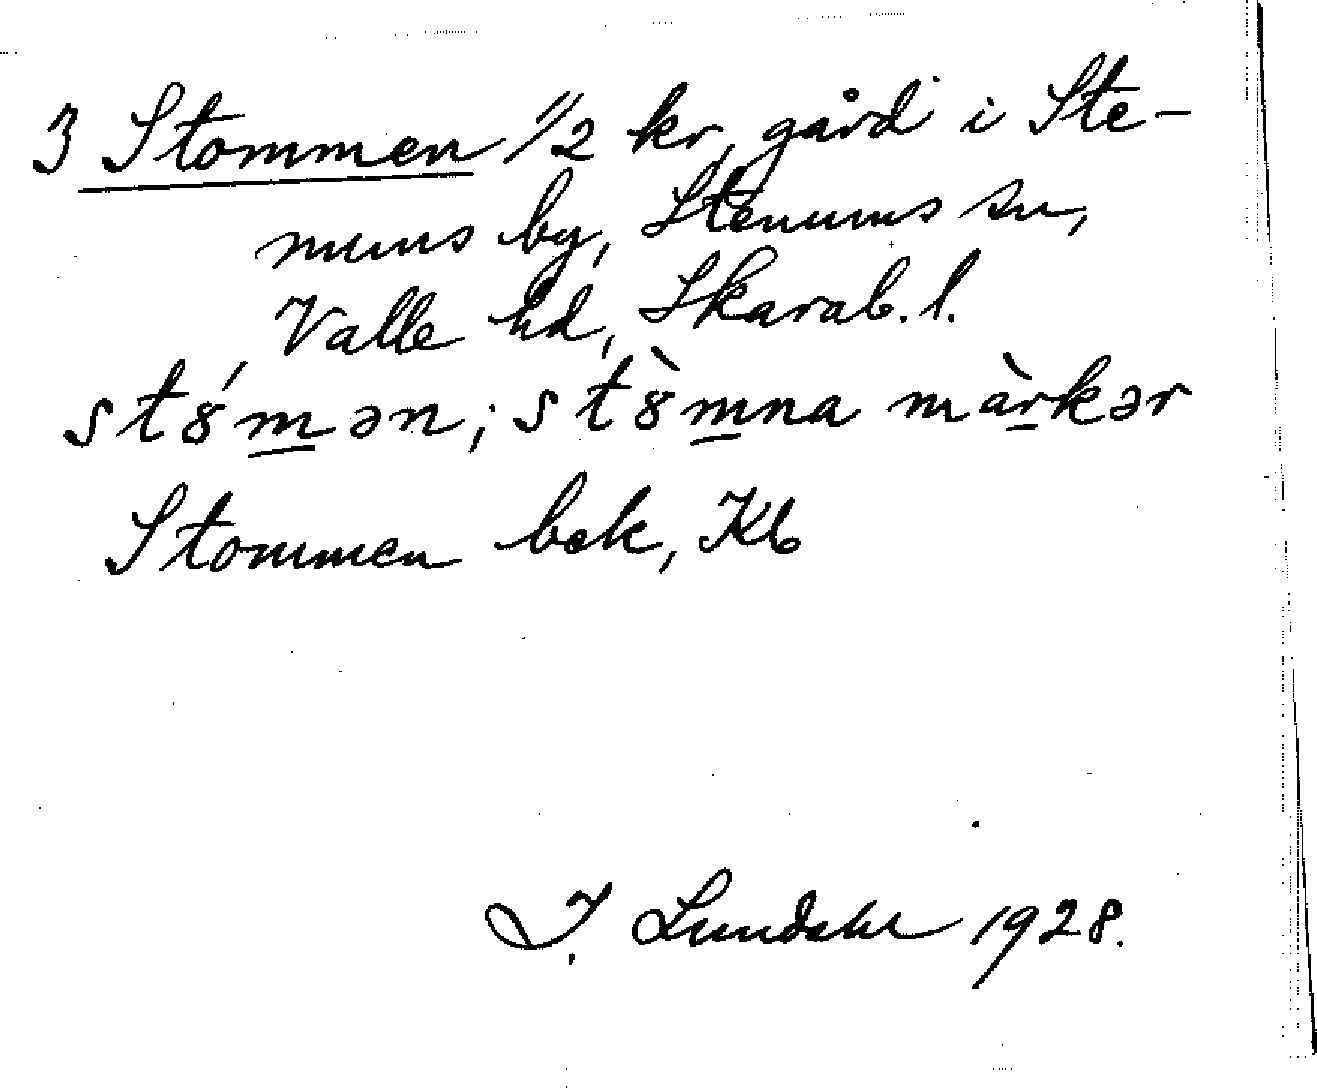 3 Stommen 1/2 kr, gård i Ste-
nums by, Stenums sn,
Valle hd, Skarab. l.
st8́m̲ən; st8̀m̲na màr̲kər
Stommen bek, Kb
I. Lundahl 1928.